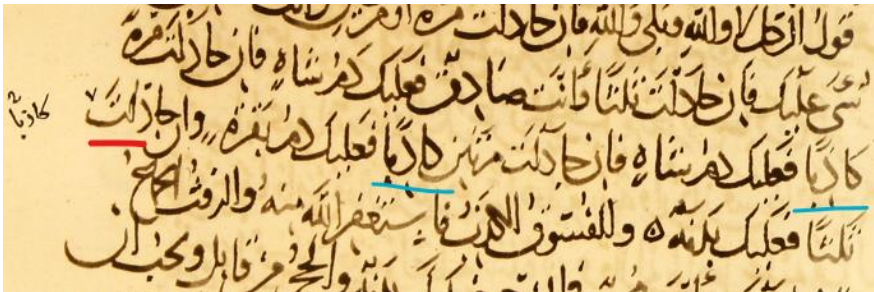 قول الرجل لا والله وبلى والله فان جادلت مرة او مرتين
شئ عليك فان جادلت ثلثا وانت صادق فعليك دم شاة فان جادلت مرة
كاذبا فعليك دم شاة فان جادلت مرتين كاذبا فعليك دم بقرة وان جادلت
كاذبا
ثلثا فعليك بدنة والفسوق الكذب فاستغفر الله منه والرفث الجماع
بدنة والحج من قابل ويجب ان